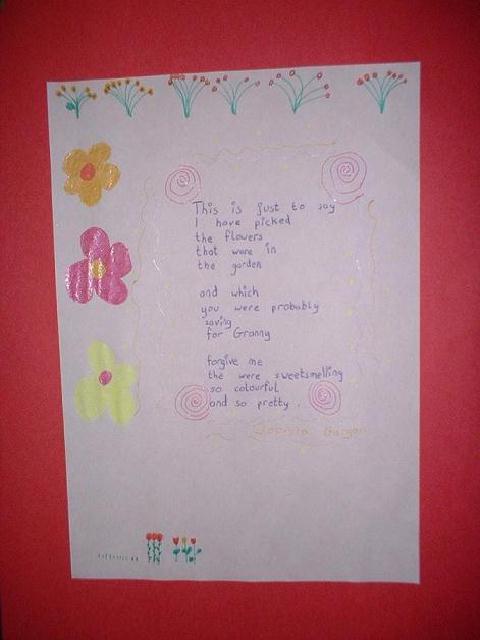 This is just to say
I have picked
the flowers
that were in
the garden
and which
you were probably
saving
for Granny
forgive me
the were sweetsmelling
so colourful
and so pretty.